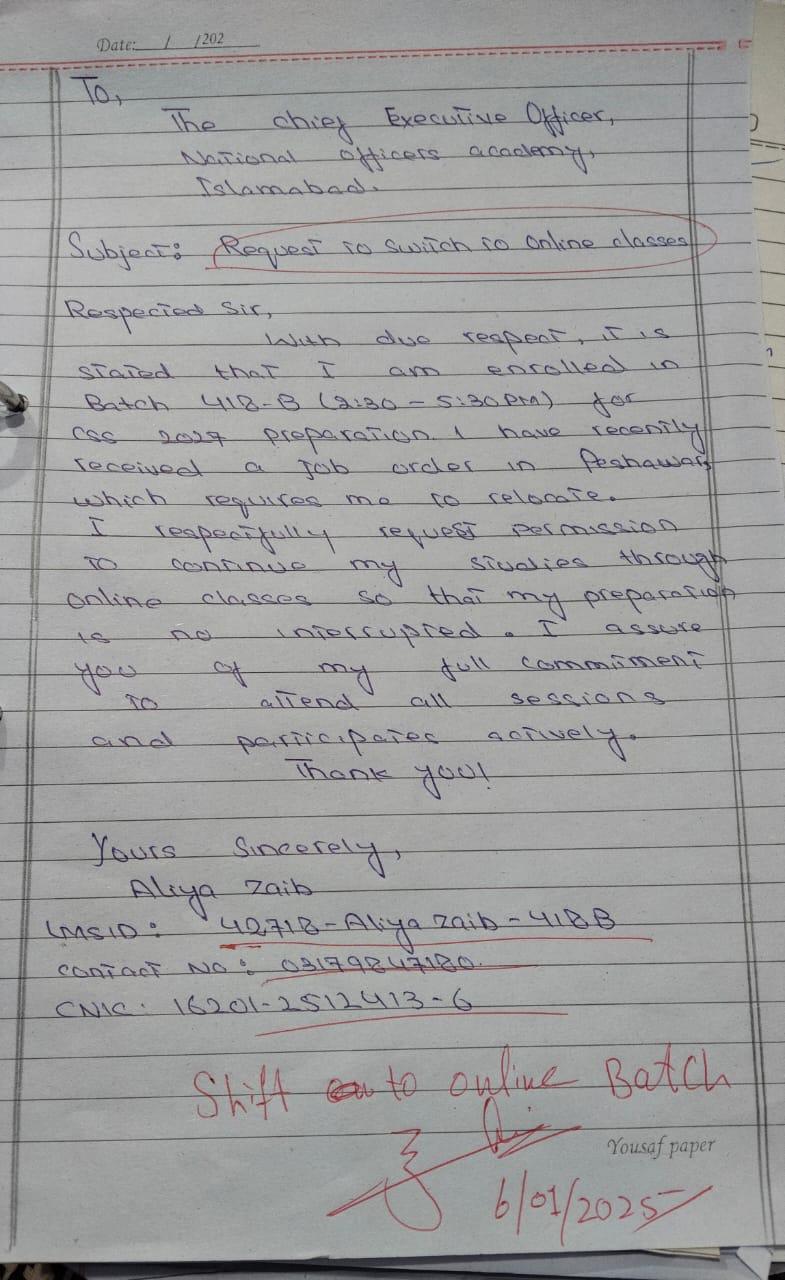 Date: / /202
To,
The chief Executive Officer,
National officers academy,
Islamabad.
Subject: Request to switch to Online classes
Respected Sir,
With due respect, it is
stated that I am enrolled in
Batch 418-B (2:30 - 5:30PM) for
CSS 2027 preparation. I have recently
received a job order in Peshawar,
which requires me to relocate.
I respectfully request permission
to continue my studies through
online classes so that my preparation
is no interrupted. I assure
you of my full commitment
to attend all sessions
and participates actively.
Thank you!
Yours Sincerely,
Aliya Zaib
LMSID: 42718-Aliya Zaib-418B
Contact No: 03179847180.
CNIC. 16201-2512413-6
Shift to online Batch
Yousaf paper
6/01/2025